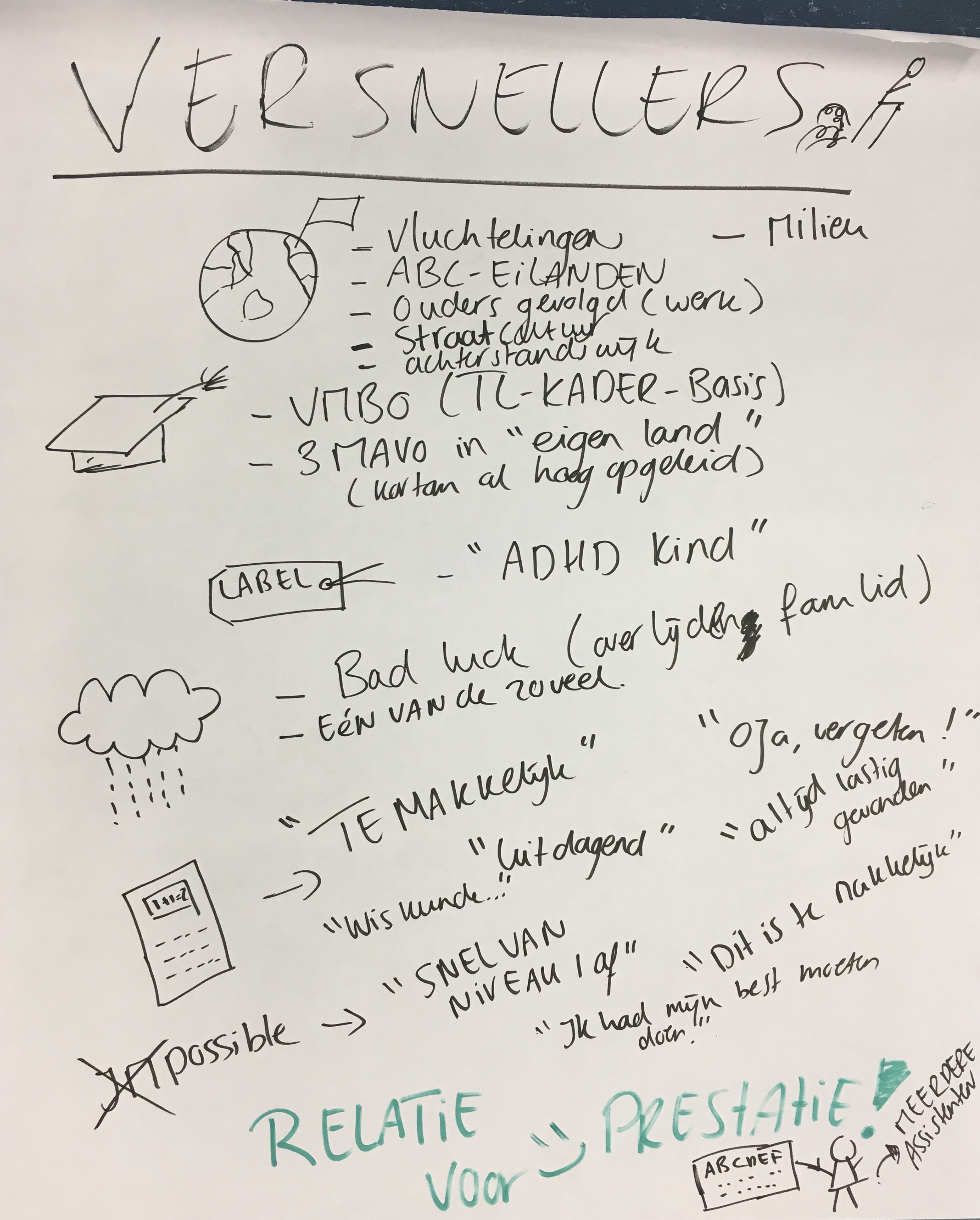 VERSNELLERS
- Vluchtelingen
- Milieu
- ABC-EiLANDEN
- Ouders gevolgd (werk)
- Straatcultuur
- achterstandswijk
- VMBO (TL-KADER-Basis)
- 3 MAVO in "eigen land"
(kortom al hoog opgeleid)
LABEL
- "ADHD kind"
- Bad luck (overlijden fam lid)
- EéN VAN de zoveel.
"TE MAKKelijk"
"Oja, vergeten!"
"Uitdagend"
"altijd lastig
gevonden"
1+1=2
"Wiskunde..."
"SNEL VAN
NiVEAU 1 af"
"Dit is te makkelijk"
Impossible
"Ik had mijn best moeten
doen!"
RELATiE
voor
PRESTATiE!
ABCDEF
MEERDERE
Assistenten